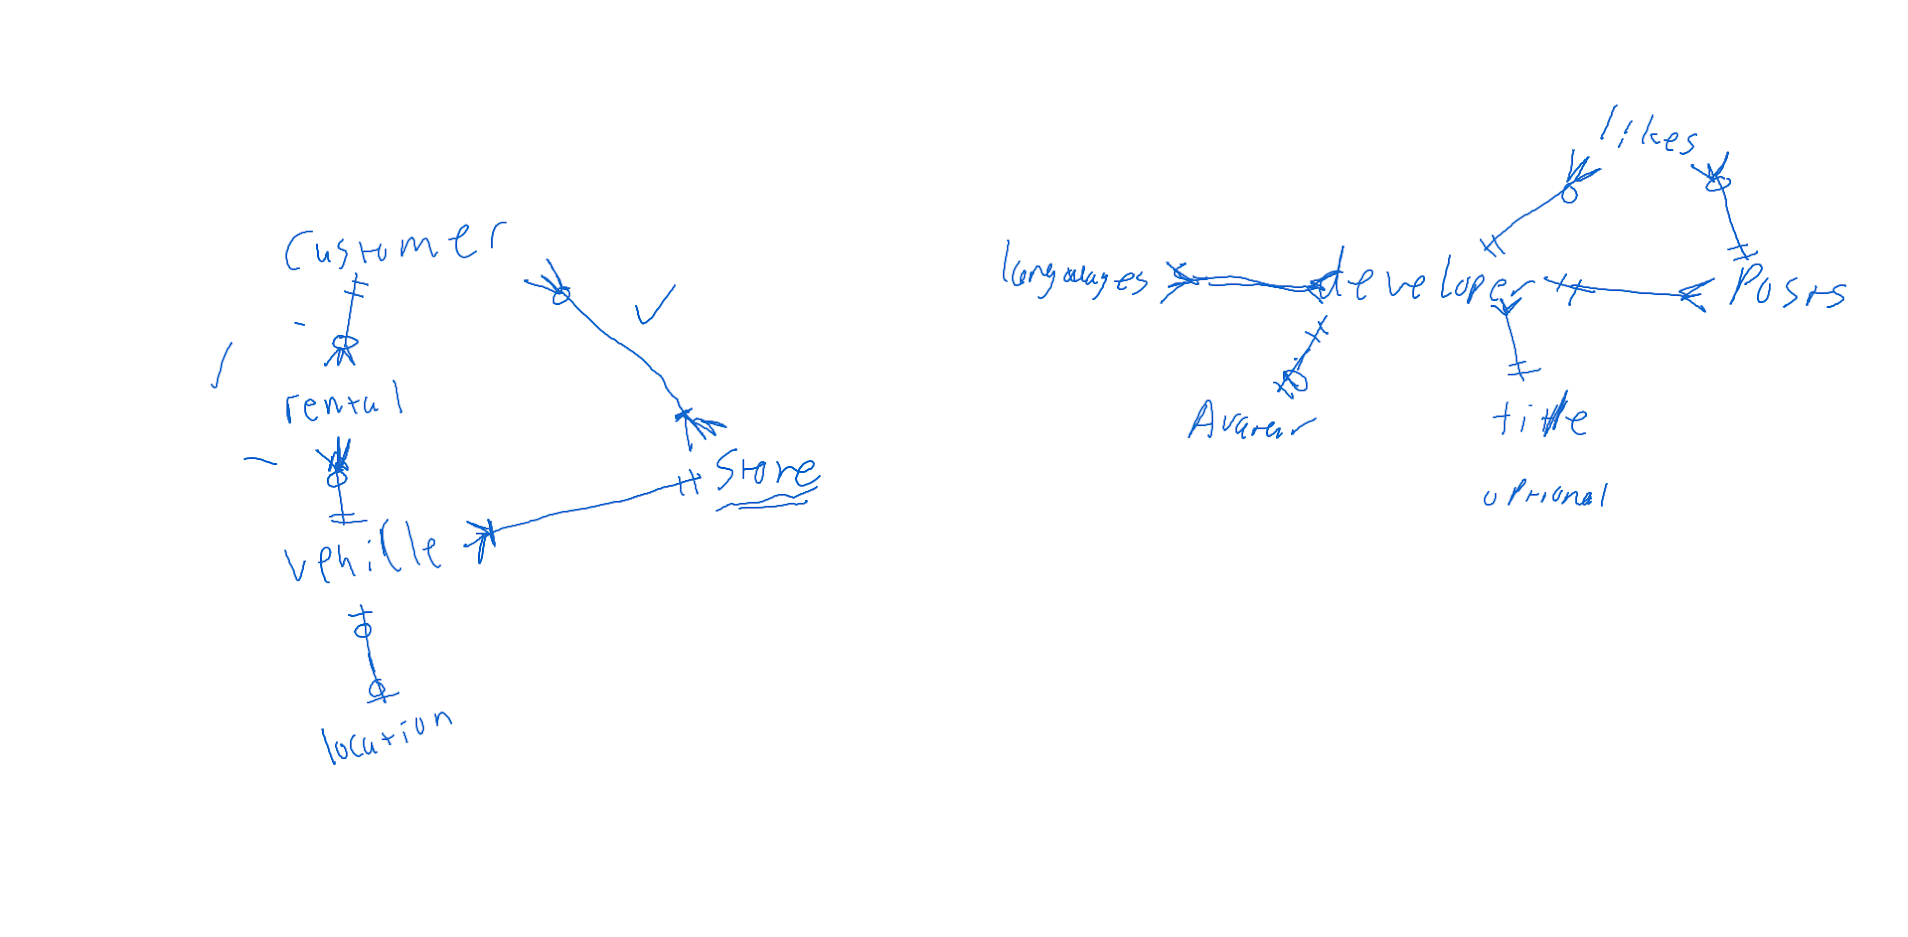 Customer
rental
vehicle
location
Store
likes
languages
developer
Posts
Avatar
title
optional